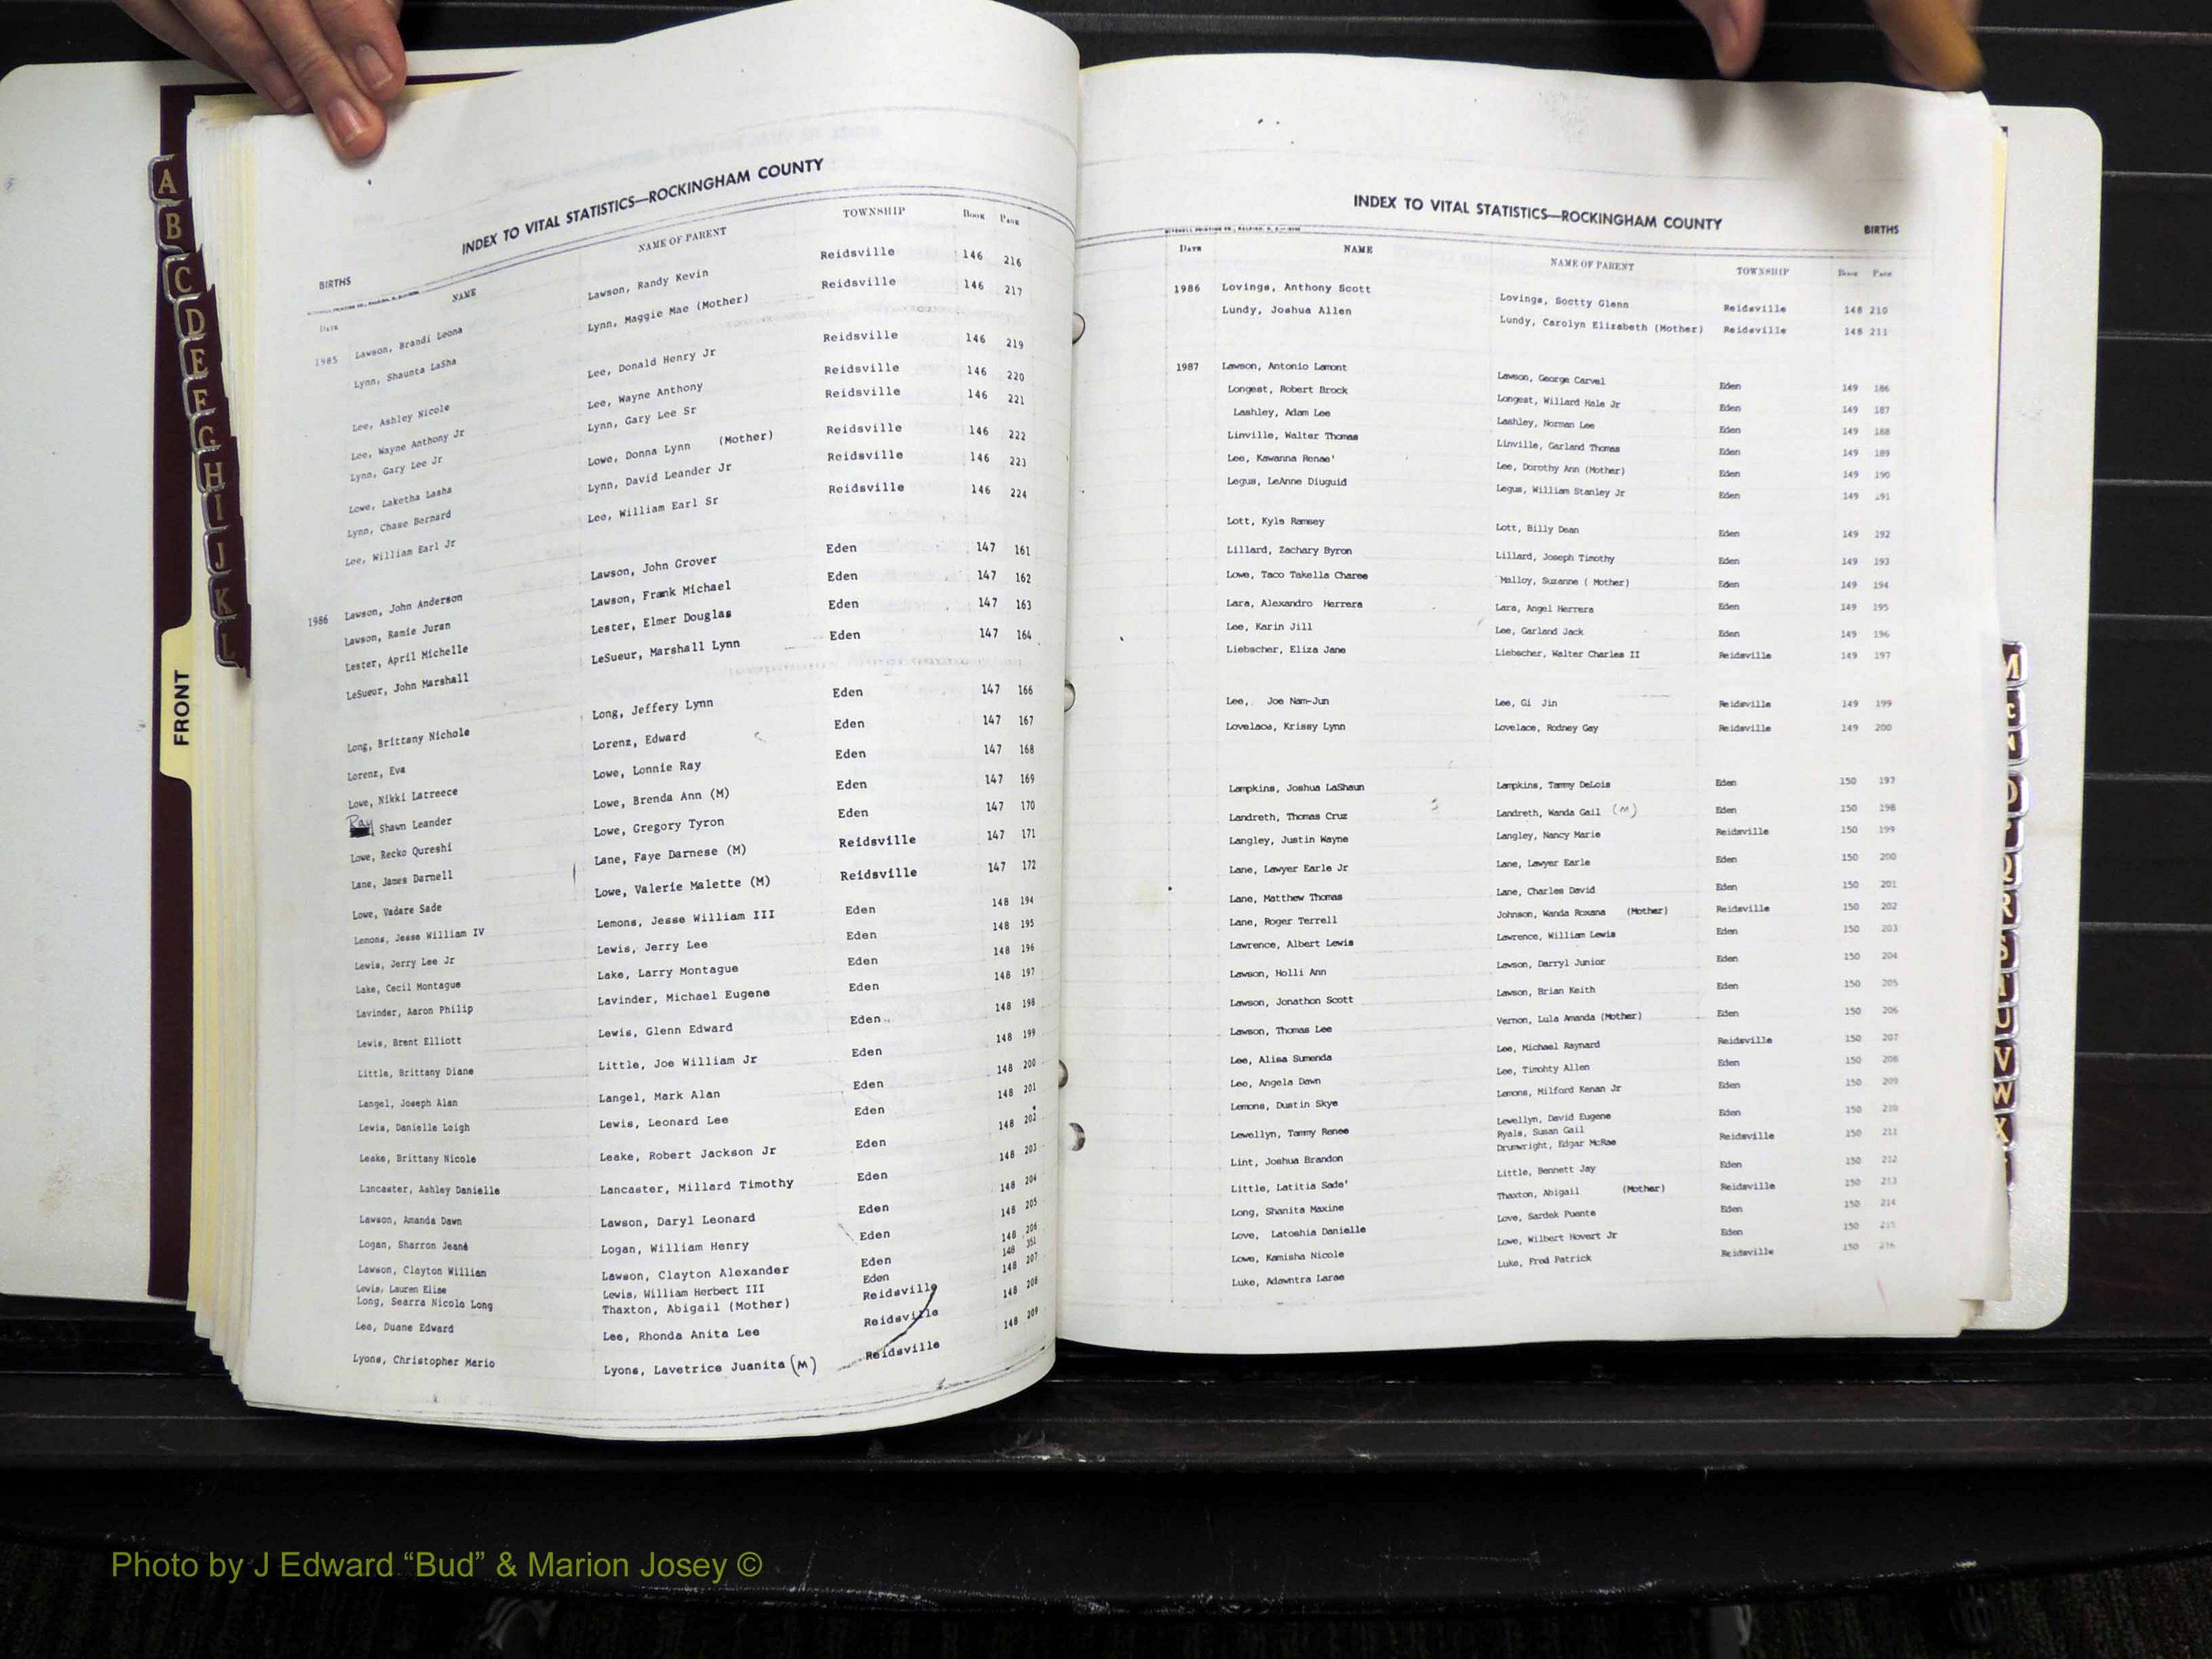 INDEX TO VITAL STATISTICS—ROCKINGHAM COUNTY
BIRTHS
DATE NAME NAME OF PARENT TOWNSHIP BOOK PAGE
1985 Lawson, Brandi Leona Lawson, Randy Kevin Reidsville 146 216
Lynn, Shaunta LaSha Lynn, Maggie Mae (Mother) Reidsville 146 217
Lee, Ashley Nicole Lee, Donald Henry Jr Reidsville 146 219
Lee, Wayne Anthony Jr Lee, Wayne Anthony Reidsville 146 220
Lynn, Gary Lee Jr Lynn, Gary Lee Sr Reidsville 146 221
Lowe, Laketha Lasha Lowe, Donna Lynn (Mother) Reidsville 146 222
Lynn, Chase Bernard Lynn, David Leander Jr Reidsville 146 223
Lee, William Earl Jr Lee, William Earl Sr Reidsville 146 224
1986 Lawson, John Anderson Lawson, John Grover Eden 147 161
Lawson, Ramie Juran Lawson, Frank Michael Eden 147 162
Lester, April Michelle Lester, Elmer Douglas Eden 147 163
LeSueur, John Marshall LeSueur, Marshall Lynn Eden 147 164
Long, Brittany Nichole Long, Jeffery Lynn Eden 147 166
Lorenz, Eva Lorenz, Edward Eden 147 167
Lowe, Nikki Latreece Lowe, Lonnie Ray Eden 147 168
Ray Shawn Leander Lowe, Brenda Ann (M) Eden 147 169
Lowe, Recko Qureshi Lowe, Gregory Tyron Eden 147 170
Lane, James Darnell Lane, Faye Darnese (M) Reidsville 147 171
Lowe, Vadare Sade Lowe, Valerie Malette (M) Reidsville 147 172
Lemons, Jesse William IV Lemons, Jesse William III Eden 148 194
Lewis, Jerry Lee Jr Lewis, Jerry Lee Eden 148 195
Lake, Cecil Montague Lake, Larry Montague Eden 148 196
Lavinder, Aaron Philip Lavinder, Michael Eugene Eden 148 197
Lewis, Brent Elliott Lewis, Glenn Edward Eden 148 198
Little, Brittany Diane Little, Joe William Jr Eden 148 199
Langel, Joseph Alan Langel, Mark Alan Eden 148 200
Lewis, Danielle Leigh Lewis, Leonard Lee Eden 148 201
Leake, Brittany Nicole Leake, Robert Jackson Jr Eden 148 202
Lancaster, Ashley Danielle Lancaster, Millard Timothy Eden 148 203
Lawson, Amanda Dawn Lawson, Daryl Leonard Eden 148 204
Logan, Sharron Jeané Logan, William Henry Eden 148 205
Lawson, Clayton William Lawson, Clayton Alexander Eden 148 206
Lewis, Lauren Elise Lewis, William Herbert III Eden 148 351
Long, Searra Nicole Long Thaxton, Abigail (Mother) Reidsville 148 207
Lee, Duane Edward Lee, Rhonda Anita Lee Reidsville 148 208
Lyons, Christopher Mario Lyons, Lavetrice Juanita (M) Reidsville 148 209
A
B
C
D
E
F
G
H
I
J
K
L
FRONT
INDEX TO VITAL STATISTICS—ROCKINGHAM COUNTY
BIRTHS
DATE NAME NAME OF PARENT TOWNSHIP BOOK PAGE
1986 Lovings, Anthony Scott Lovings, Soctty Glenn Reidsville 148 210
Lundy, Joshua Allen Lundy, Carolyn Elizabeth (Mother) Reidsville 148 211
1987 Lawson, Antonio Lamont Lawson, George Carvel Eden 149 186
Longest, Robert Brock Longest, Willard Hale Jr Eden 149 187
Lashley, Adam Lee Lashley, Norman Lee Eden 149 188
Linville, Walter Thomas Linville, Garland Thomas Eden 149 189
Lee, Kawanna Renae' Lee, Dorothy Ann (Mother) Eden 149 190
Legus, LeAnne Diuguid Legus, William Stanley Jr Eden 149 191
Lott, Kyle Ramsey Lott, Billy Dean Eden 149 192
Lillard, Zachary Byron Lillard, Joseph Timothy Eden 149 193
Lowe, Taco Takella Charee Malloy, Suzanne ( Mother) Eden 149 194
Lara, Alexandro Herrera Lara, Angel Herrera Eden 149 195
Lee, Karin Jill Lee, Garland Jack Eden 149 196
Liebscher, Eliza Jane Liebscher, Walter Charles II Reidsville 149 197
Lee, Joe Nam-Jun Lee, Gi Jin Reidsville 149 199
Lovelace, Krissy Lynn Lovelace, Rodney Gay Reidsville 149 200
Lampkins, Joshua LaShaun Lampkins, Tammy DeLois Eden 150 197
Landreth, Thomas Cruz Landreth, Wanda Gail (M) Eden 150 198
Langley, Justin Wayne Langley, Nancy Marie Reidsville 150 199
Lane, Lawyer Earle Jr Lane, Lawyer Earle Eden 150 200
Lane, Matthew Thomas Lane, Charles David Eden 150 201
Lane, Roger Terrell Johnson, Wanda Roxana (Mother) Reidsville 150 202
Lawrence, Albert Lewis Lawrence, William Lewis Eden 150 203
Lawson, Holli Ann Lawson, Darryl Junior Eden 150 204
Lawson, Jonathon Scott Lawson, Brian Keith Eden 150 205
Lawson, Thomas Lee Vernon, Lula Amanda (Mother) Eden 150 206
Lee, Alisa Sumenda Lee, Michael Raynard Reidsville 150 207
Lee, Angela Dawn Lee, Timohty Allen Eden 150 208
Lemons, Dustin Skye Lemons, Milford Kenan Jr Eden 150 209
Lewellyn, Tammy Renee Lewellyn, David Eugene Eden 150 210
Ryals, Susan Gail
Lint, Joshua Brandon Drumwright, Edgar McRae Reidsville 150 211
Little, Latitia Sade' Little, Bennett Jay Eden 150 212
Long, Shanita Maxine Thaxton, Abigail (Mother) Reidsville 150 213
Love, Latoshia Danielle Love, Sardek Puente Eden 150 214
Lowe, Kamisha Nicole Lowe, Wilbert Hovert Jr Eden 150 215
Luke, Adawntra Larae Luke, Fred Patrick Reidsville 150 216
M
V
W
X
Photo by J Edward “Bud” & Marion Josey ©